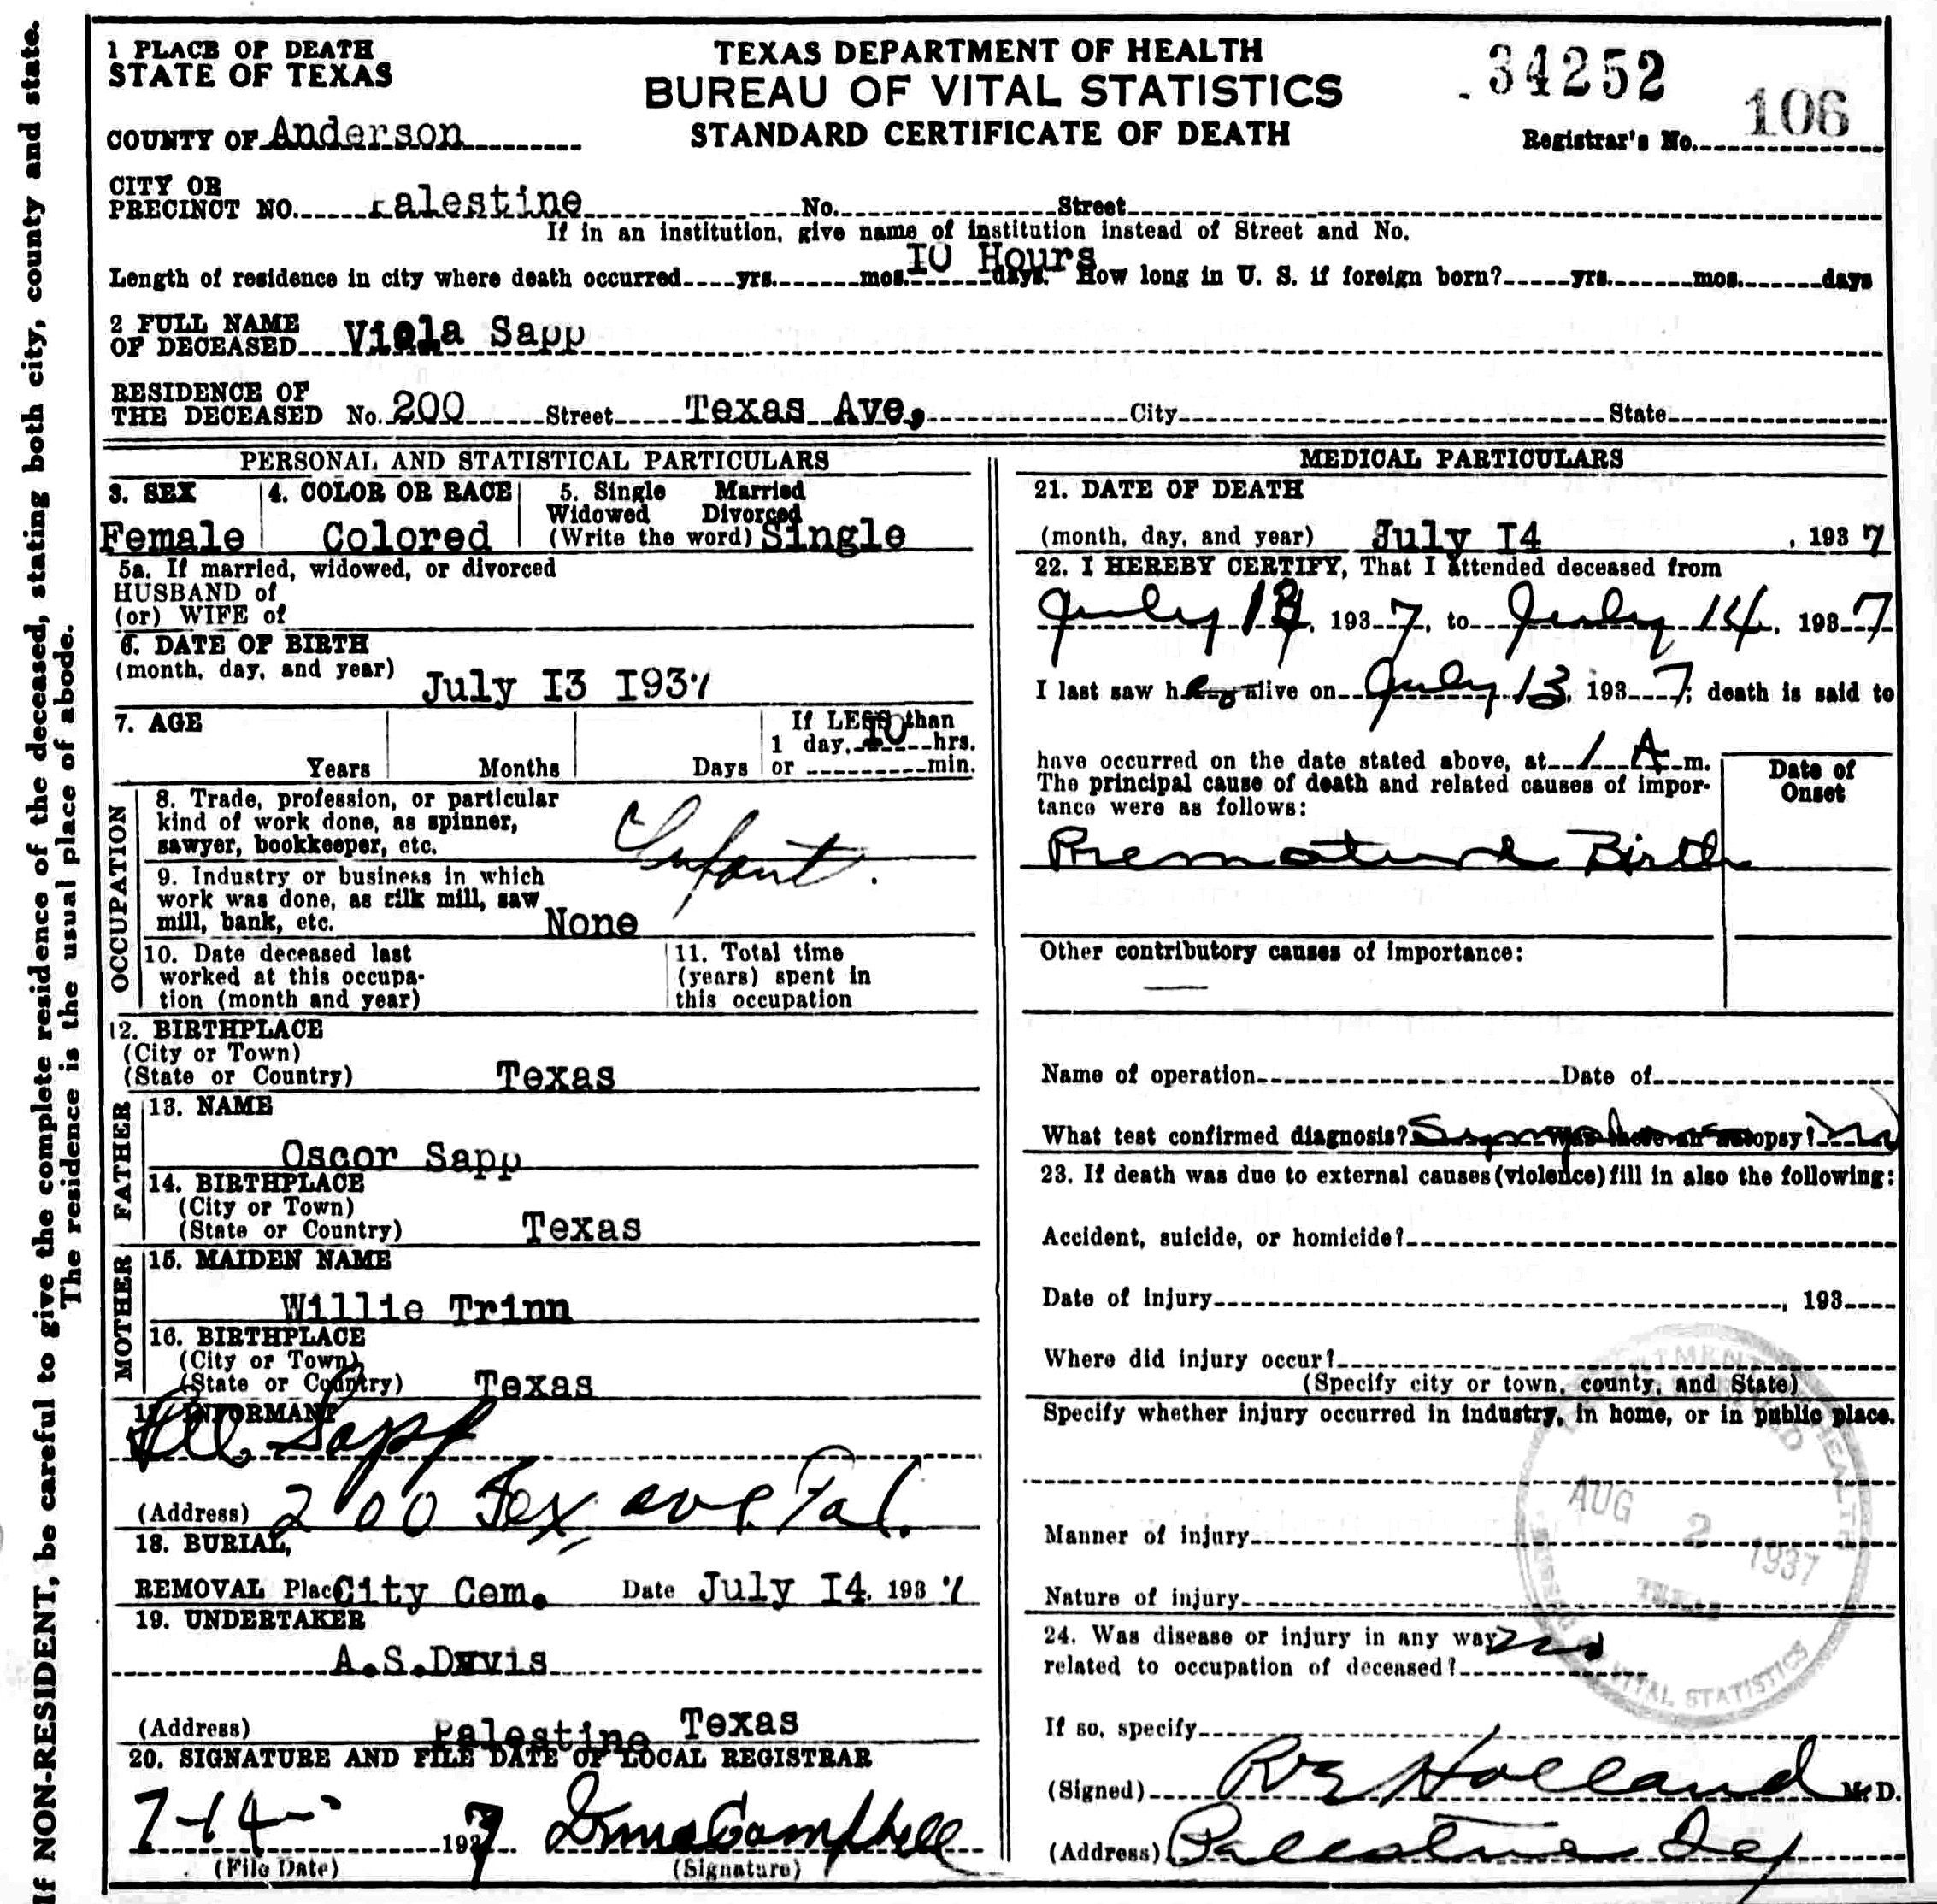 If NON-RESIDENT, be careful to give the complete residence of the deceased, stating both city, county and state.
The residence is the usual place of abode.
1 PLACE OF DEATH
STATE OF TEXAS
COUNTY OF Anderson
TEXAS DEPARTMENT OF HEALTH
BUREAU OF VITAL STATISTICS
STANDARD CERTIFICATE OF DEATH
34252
Registrar's No. 106
CITY OR
PRECINCT NO. Palestine No. Street
If in an institution, give name of institution instead of Street and No.
Length of residence in city where death occurred yrs. mos. I0 Hours days. How long in U. S. if foreign born? yrs. mos. days
2 FULL NAME
OF DECEASED Viola Sapp
RESIDENCE OF
THE DECEASED No. 200 Street Texas Ave, City State
PERSONAL AND STATISTICAL PARTICULARS
3. SEX
Female
4. COLOR OR RACE
Colored
5. Single Married
Widowed Divorced
(Write the word) Single
5a. If married, widowed, or divorced
HUSBAND of
(or) WIFE of
6. DATE OF BIRTH
(month, day, and year) July I3 I937
7. AGE
Years Months Days
If LESS than
1 day, I0 hrs.
or min.
OCCUPATION
8. Trade, profession, or particular
kind of work done, as spinner,
sawyer, bookkeeper, etc.
Infant.
9. Industry or business in which
work was done, as silk mill, saw
mill, bank, etc. None
10. Date deceased last
worked at this occupa-
tion (month and year)
11. Total time
(years) spent in
this occupation
12. BIRTHPLACE
(City or Town)
(State or Country) Texas
FATHER
13. NAME
Oscor Sapp
14. BIRTHPLACE
(City or Town)
(State or Country) Texas
MOTHER
15. MAIDEN NAME
Willie Trinn
16. BIRTHPLACE
(City or Town)
(State or Country) Texas
17. INFORMANT
Sapp
(Address) 200 Tex ave. Pal.
18. BURIAL,
REMOVAL Place City Cem. Date July I4, 1937
19. UNDERTAKER
A.S.Davis
(Address) Palestine Texas
20. SIGNATURE AND FILE DATE OF LOCAL REGISTRAR
7-14- 1937 Irma Campbell
(File Date) (Signature)
MEDICAL PARTICULARS
21. DATE OF DEATH
(month, day, and year) July I4, 1937
22. I HEREBY CERTIFY, That I attended deceased from
July 13, 1937, to July 14, 1937
I last saw her alive on July 13, 1937; death is said to
have occurred on the date stated above, at 1 A m.
The principal cause of death and related causes of impor-
tance were as follows:
Date of
Onset
Premature Birth
Other contributory causes of importance:
—
Name of operation Date of
What test confirmed diagnosis? Symptoms Was there an autopsy? No
23. If death was due to external causes (violence) fill in also the following:
Accident, suicide, or homicide?
Date of injury , 193
Where did injury occur?
(Specify city or town, county, and State)
Specify whether injury occurred in industry, in home, or in public place.
Manner of injury
Nature of injury
AUG 2 1937
TEXAS
BUREAU OF VITAL STATISTICS
24. Was disease or injury in any way
related to occupation of deceased? no
If so, specify
(Signed) R E Holland M. D.
(Address) Palestine Tex